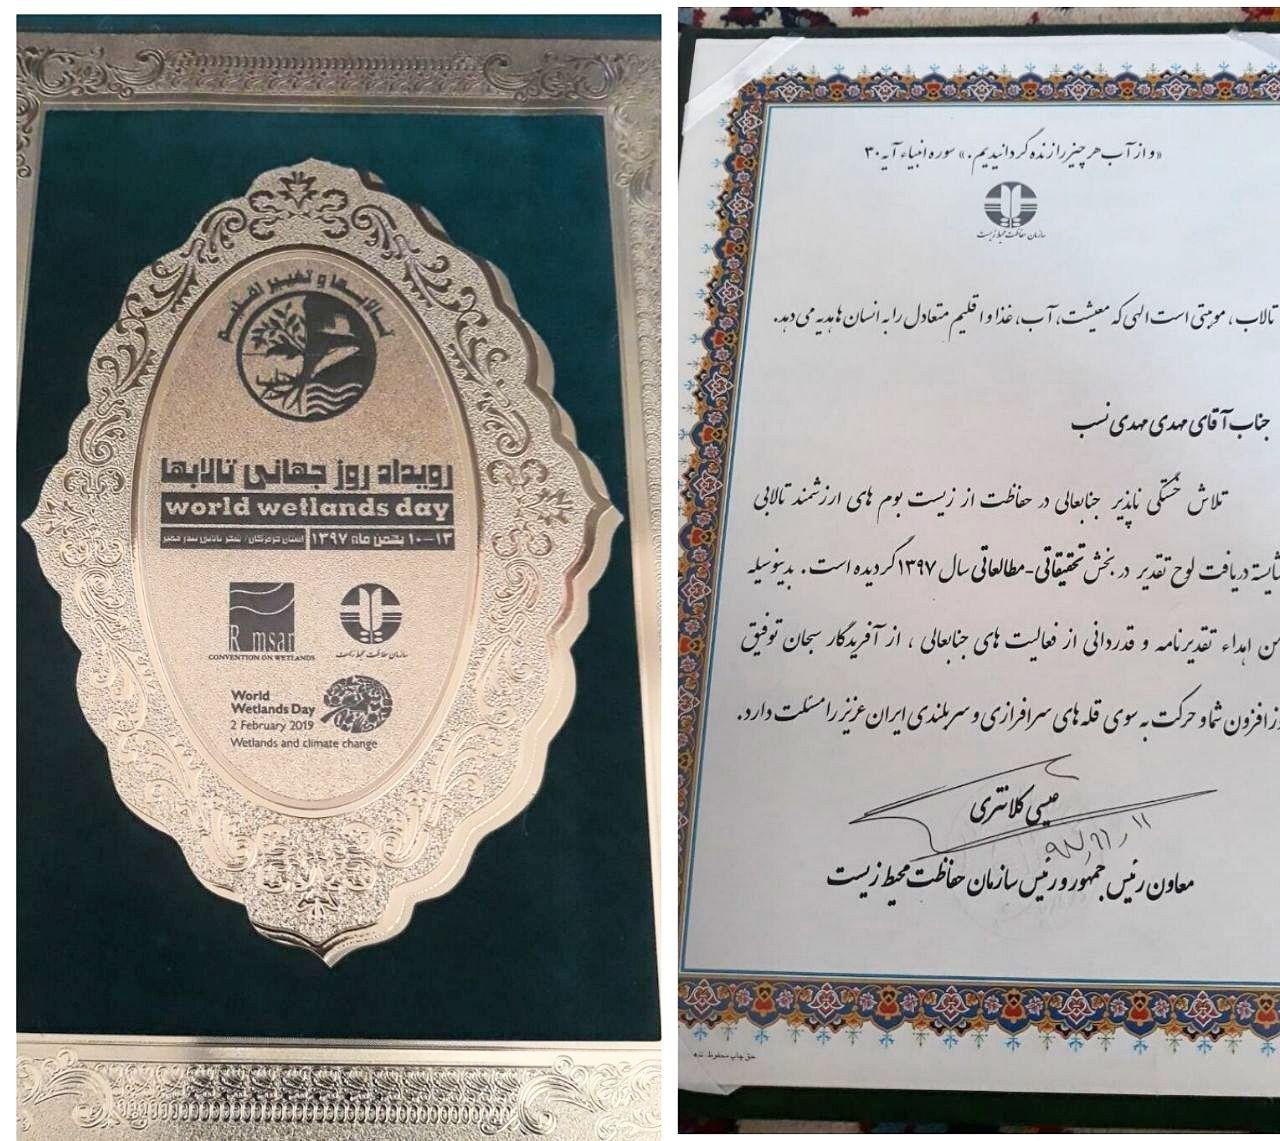 تالابها و تغییر اقلیم
رویداد روز جهانی تالابها
world wetlands day
۱۰-۱۳ بهمن ماه ۱۳۹۷
استان هرمزگان/ شهر تالابی بندر خمیر
Ramsar
CONVENTION ON WETLANDS
سازمان حفاظت محیط زیست
World
Wetlands Day
2 February 2019
Wetlands and climate change
«و از آب هر چیز را زنده گردانیدیم.» سوره انبیاء آیه ۳۰
سازمان حفاظت محیط زیست
تالاب، موهبتی است الهی که معیشت، آب، غذا و اقلیم متعادل را به انسان ها هدیه می دهد.
جناب آقای مهدی مهدی نسب
تلاش خستگی ناپذیر جنابعالی در حفاظت از زیست بوم های ارزشمند تالابی
دریافت لوح تقدیر در بخش تحقیقاتی-مطالعاتی سال ۱۳۹۷ گردیده است. بدینوسیله
اهداء تقدیرنامه و قدردانی از فعالیت های جنابعالی، از آفریدگار سبحان توفیق
افزون شما و حرکت به سوی قله های سرافرازی و سربلندی ایران عزیز را مسئلت دارد.
عیسی کلانتری
معاون رئیس جمهور و رئیس سازمان حفاظت محیط زیست
حق چاپ محفوظ